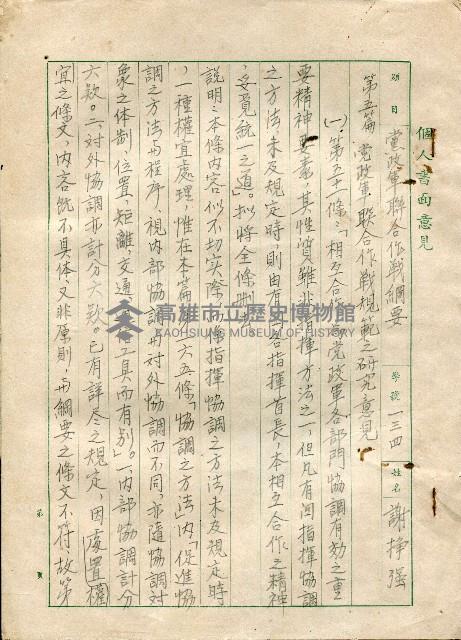 個人書面意見
題目 黨政軍聯合作戰綱要 學號 一三四 姓名 謝挣强
第五篇 黨政軍聯合作戰規範之研究意見
(一)第五十條:「相互合作為黨政軍各部門協調有効之重
要精神要素,其性質雖非指揮方法之一,但凡有関指揮協調
之方法未及規定時,則由有関各指揮首長,本相互合作之精神
,妥覓統一之道。」拟將全條刪去
說明:本條內容似不切实際,而僅指揮協調之方法未及規定時
,一種權宜處理,惟在本篇 六五條「協調之方法」內「促進協
調之方法與程序,視內部協調與对外協調而不同,亦隨協調对
象之体制,位置,矩離,交通 工具而有别」。一、內部協調計分
六欵。二、对外協調亦計分六欵。已有詳尽之規定,因處置權
宜之條文,內容既不具体,又非原則,與綱要之條文不符,故第
第 頁
高雄市立歷史博物館
KAOHSIUNG MUSEUM OF HISTORY